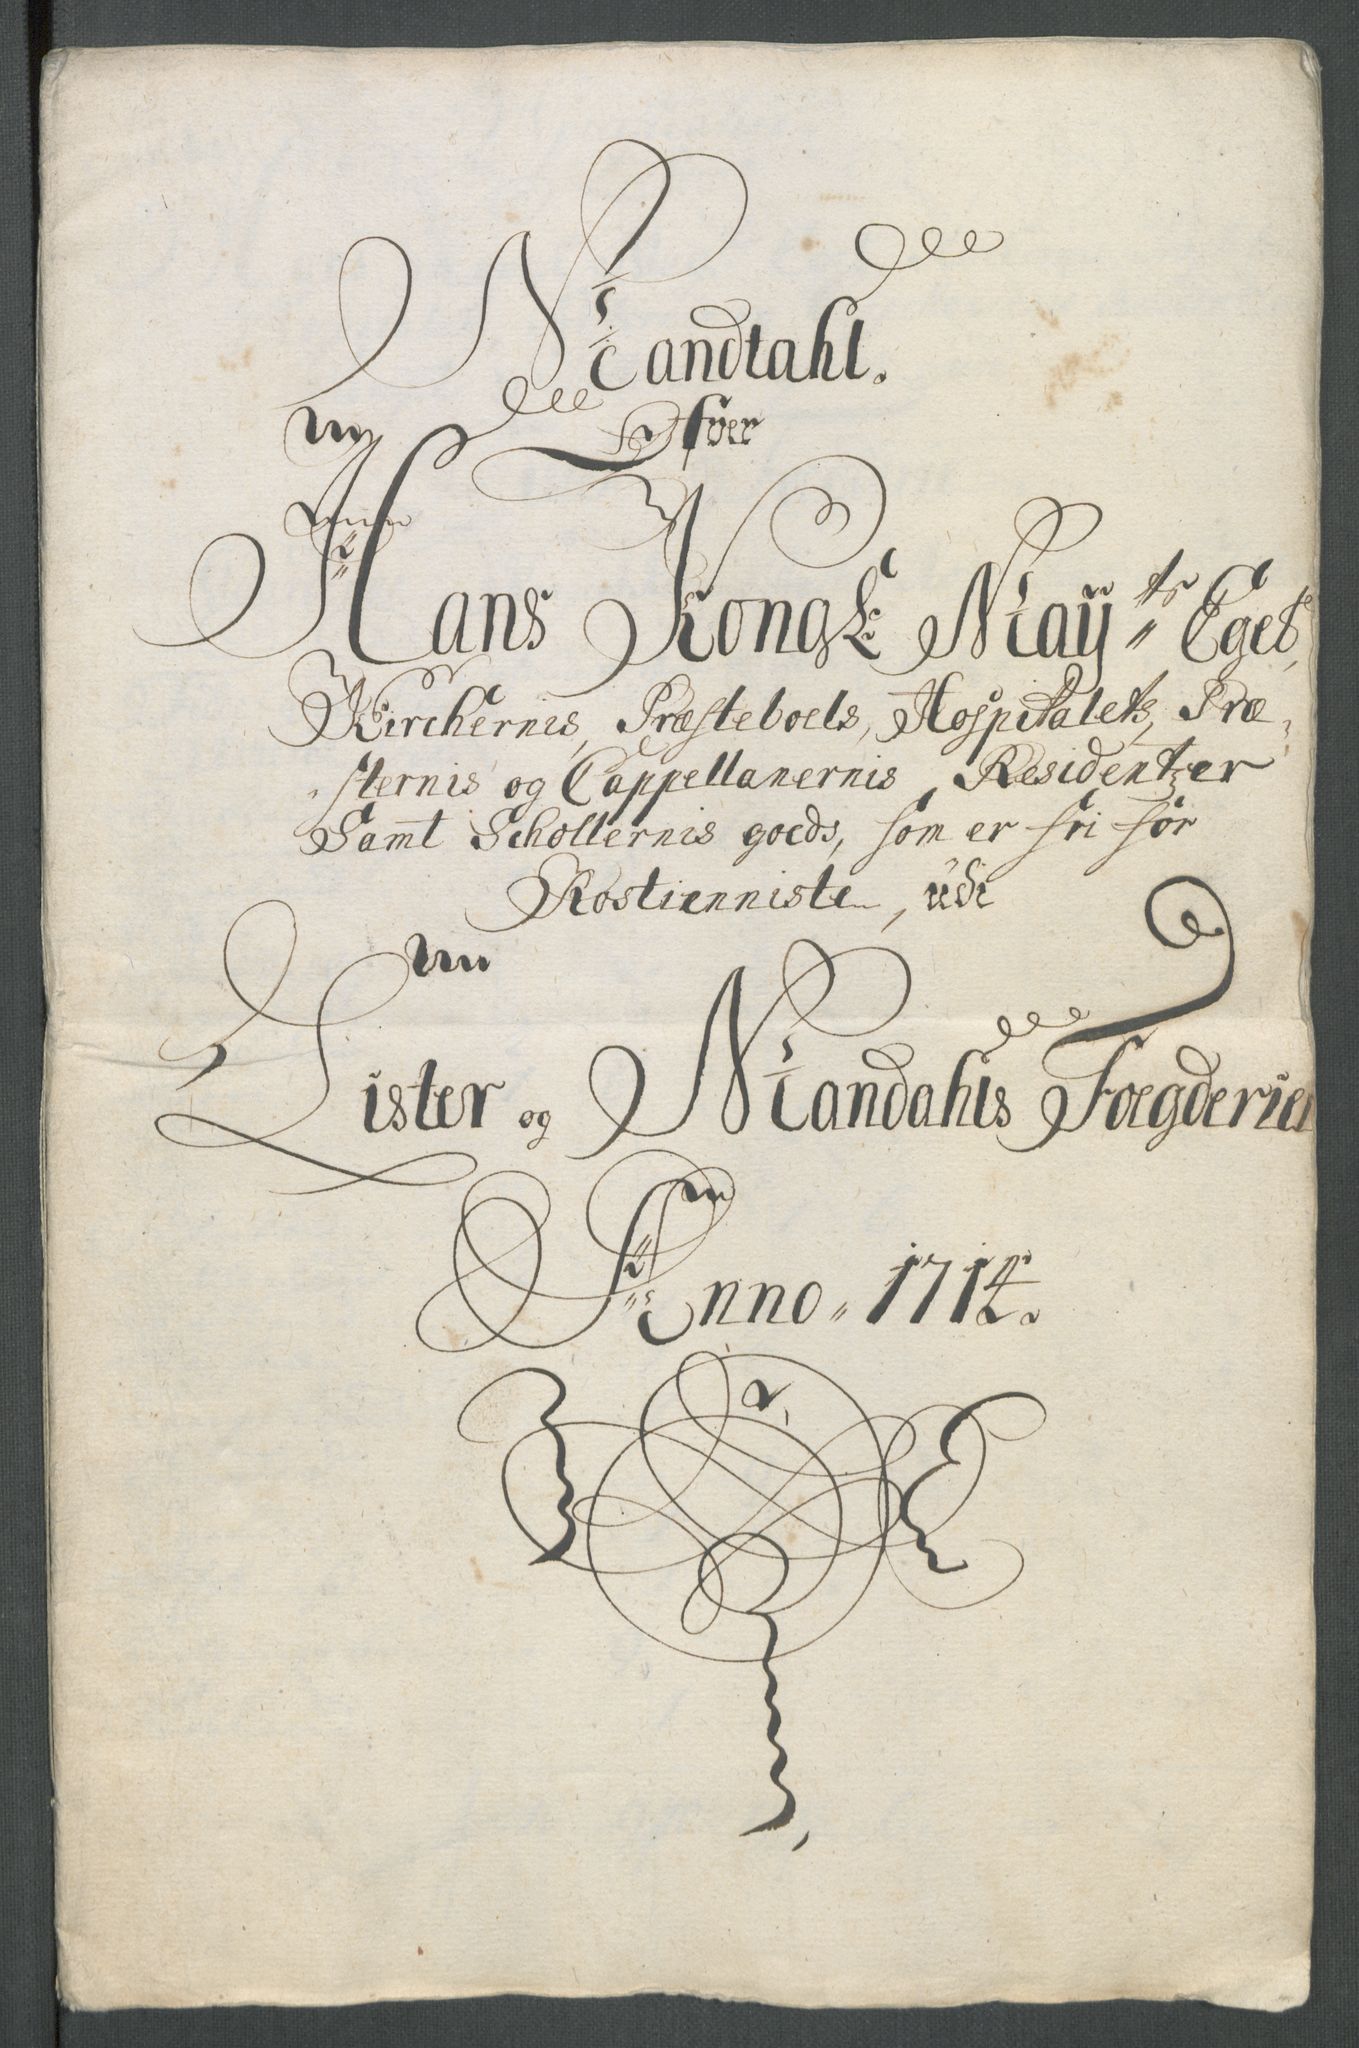 Mandtahl.
Ofver
Hans Kongl Mayts Eget,
Kirchernis, Præsteboels, Hospitalets, Præ-
sternis og Cappellanernis, Residentzer
Samt Schollernis goeds, som er fri for
Rostienniste, udi
Lister og Mandahls Foegderier
Anno 1714.